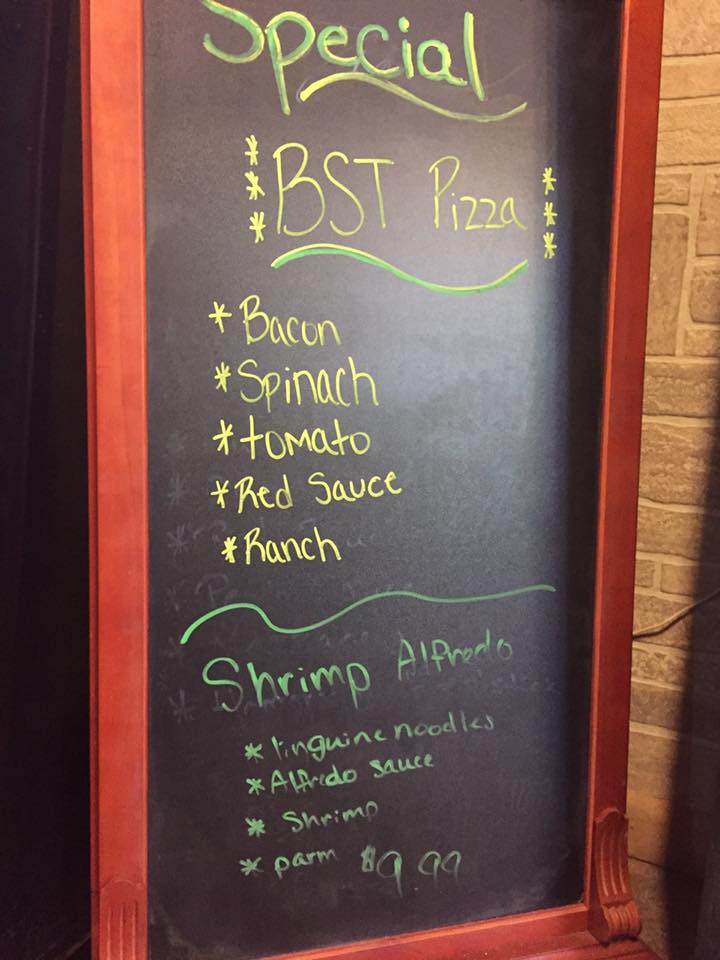 Special
* BST Pizza *
* *
* *
* Bacon
* Spinach
* tomato
* Red Sauce
* Ranch
Shrimp Alfredo
* linguine noodles
* Alfredo sauce
* Shrimp
* parm $9.99